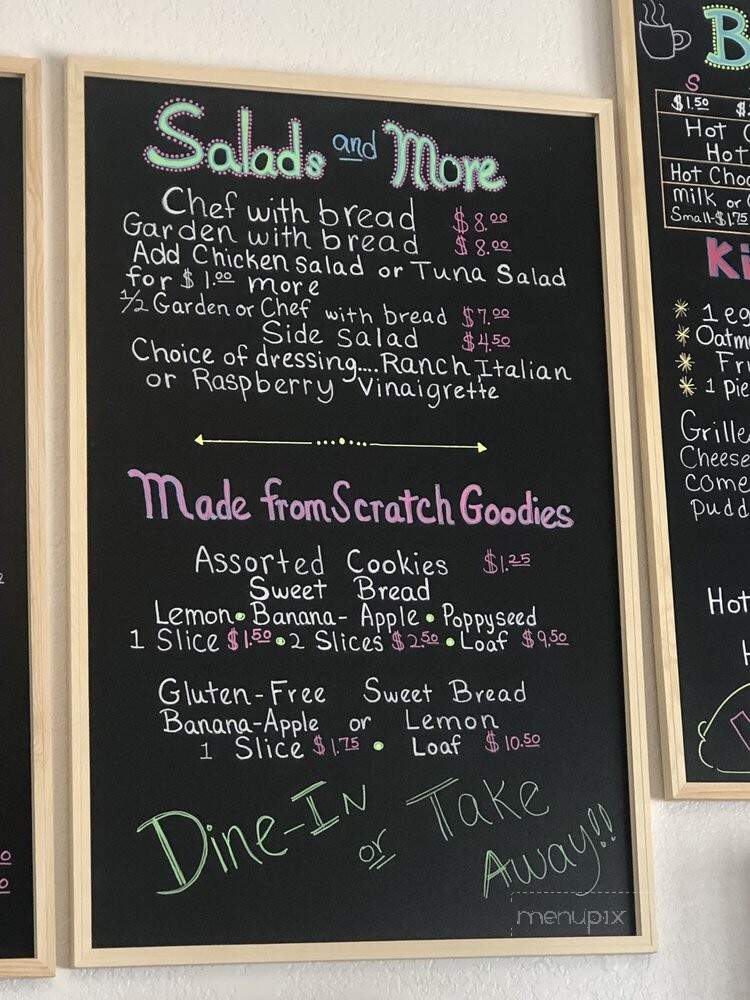 Salads and More
Chef with bread $8.00
Garden with bread $8.00
Add Chicken salad or Tuna Salad
for $1.00 more
1/2 Garden or Chef with bread $7.00
Side Salad $4.50
Choice of dressing....Ranch Italian
or Raspberry Vinaigrette
Made from Scratch Goodies
Assorted Cookies $1.25
Sweet Bread
Lemon • Banana-Apple • Poppyseed
1 Slice $1.50 • 2 Slices $2.50 • Loaf $9.50
Gluten-Free Sweet Bread
Banana-Apple or Lemon
1 Slice $1.75 • Loaf $10.50
Dine-In or Take
Away!!
menupix
S
$1.50
Hot
Hot
Hot Choc
milk or
Small-$1.75
Ki
* 1 eg
* Oatm
* Fr
* 1 pie
Grille
Cheese
come
pudd
Hot